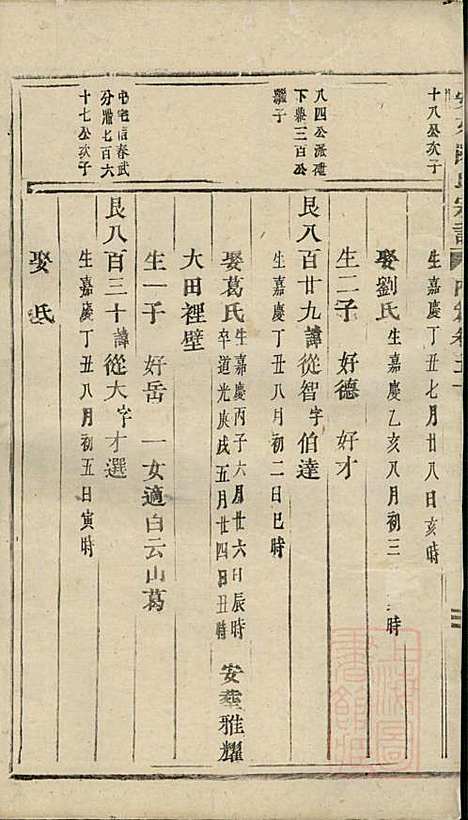 十八公次子
生嘉慶丁丑七月廿八日亥時
娶劉氏 生嘉慶乙亥八月初三 時
生二子 好德 好才
八四公派
下 三百公
子
艮八百廿九諱從智字伯達
生嘉慶丁丑八月初二日巳時
娶葛氏 生嘉慶丙子六月廿六日辰時
卒道光庚戌五月廿四日丑時 安葬雅耀
大田裡壁
生一子 好岳 一女適白云山葛
屯宅信春武
分 七百六
十七公次子
艮八百三十諱從大字才選
生嘉慶丁丑八月初五日寅時
娶 氏